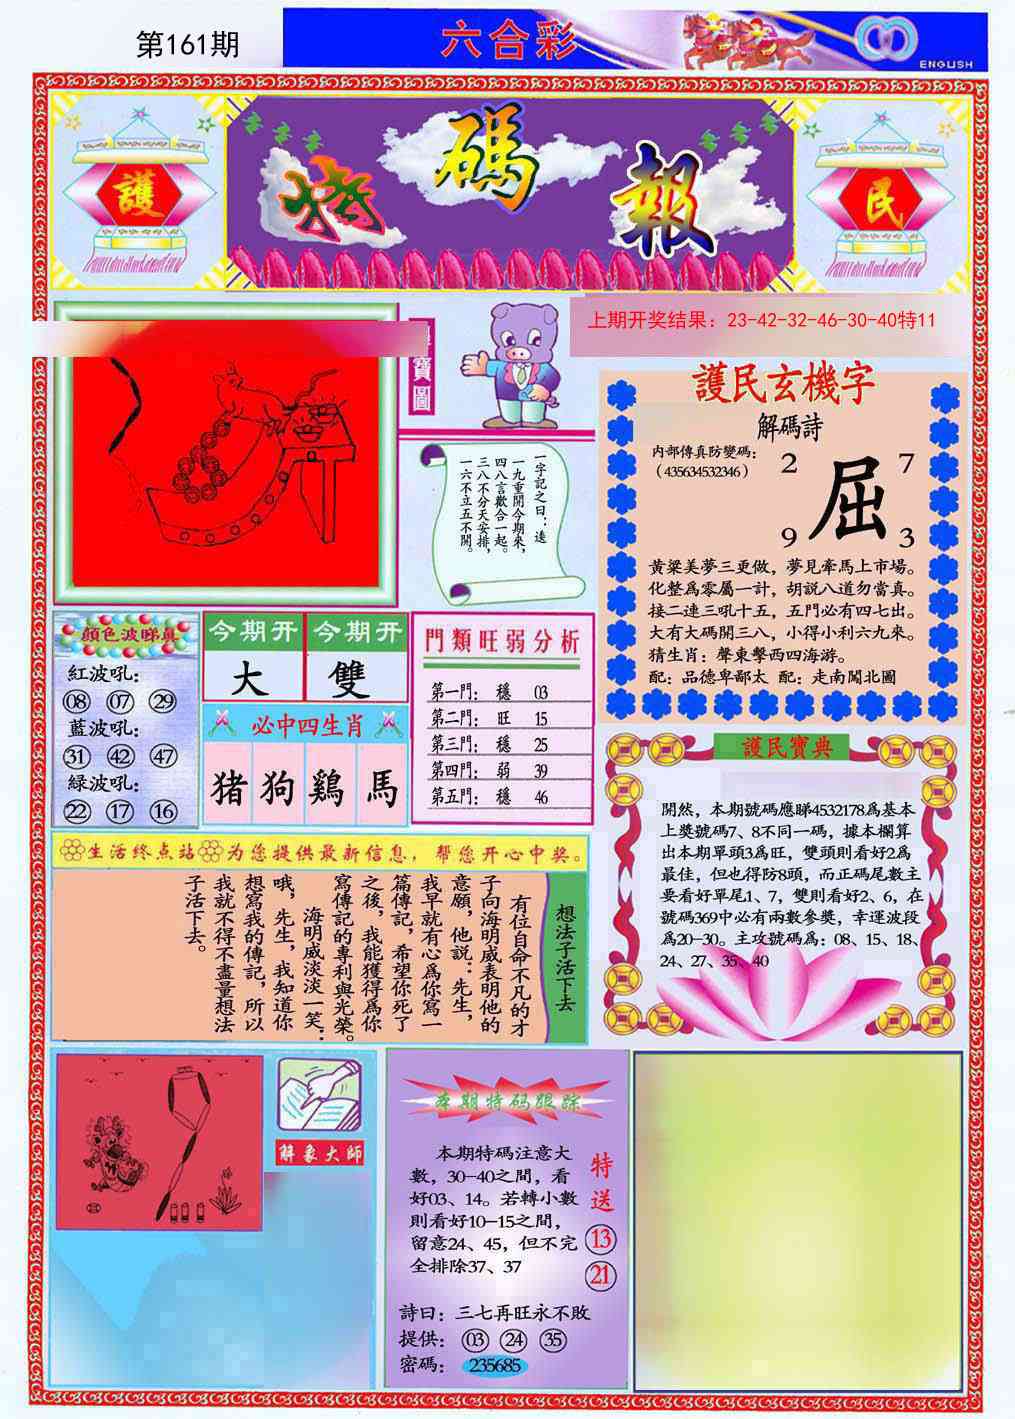 第161期
六合彩
ENGLISH
護
特碼報
民
寶圖
上期开奖结果：23-42-32-46-30-40特11
一字記之曰：遠
一九重開今期來，
四八言歡合一起。
三八不分天安排，
一六不立五不開。
護民玄機字
解碼詩
内部傳真防變碼：
（435634532346）
2 7
屈
9 3
黄粱美夢三更做，夢見牽馬上市場。
化整爲零屬一計，胡説八道勿當真。
接二連三吼十五，五門必有四七出。
大有大碼開三八，小得小利六九來。
猜生肖：聲東擊西四海游。
配：品德卑鄙太 配：走南闖北圖
顔色波睇真
紅波吼：
08 07 29
藍波吼：
31 42 47
緑波吼：
22 17 16
今期开 今期开
大 雙
必中四生肖
猪 狗 鷄 馬
門類旺弱分析
第一門： 穩 03
第二門： 旺 15
第三門： 穩 25
第四門： 弱 39
第五門： 穩 46
護民寶典
開然，本期號碼應睇4532178爲基本
上獎號碼7、8不同一碼，據本欄算
出本期單頭3爲旺，雙頭則看好2爲
最佳，但也得防8頭，而正碼尾數主
要看好單尾1、7，雙則看好2、6，在
號碼369中必有兩數參獎，幸運波段
爲20-30。主攻號碼爲：08、15、18、
24、27、35、40
生活终点站 为您提供最新信息，帮您开心中奖。
想法子活下去
有位自命不凡的才
子向海明威表明他的
意願，他説：先生，
我早就有心爲你寫一
篇傳記，希望你死了
之後，我能獲得爲你
寫傳記的專利與光榮。
海明威淡淡一笑：
哦，先生，我知道你
想寫我的傳記，所以
我就不得不盡量想法
子活下去。
解象大師
本期特码跟踪
本期特碼注意大
數，30-40之間，看
好03、14。若轉小數
則看好10-15之間，
留意24、45，但不完
全排除37、37
特送
13
21
詩曰：三七再旺永不敗
提供： 03 24 35
密碼： 235685